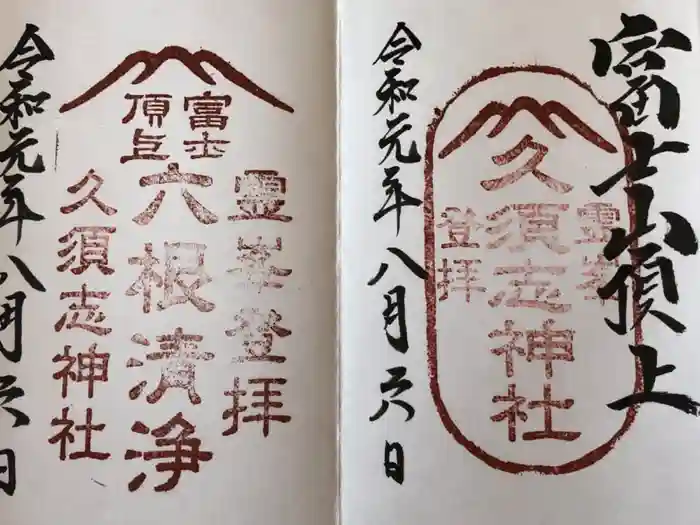 富士山頂上
霊峯登拝
久須志神社
令和元年八月六日
霊峯登拝
富士頂上
六根清浄
久須志神社
令和元年八月六日